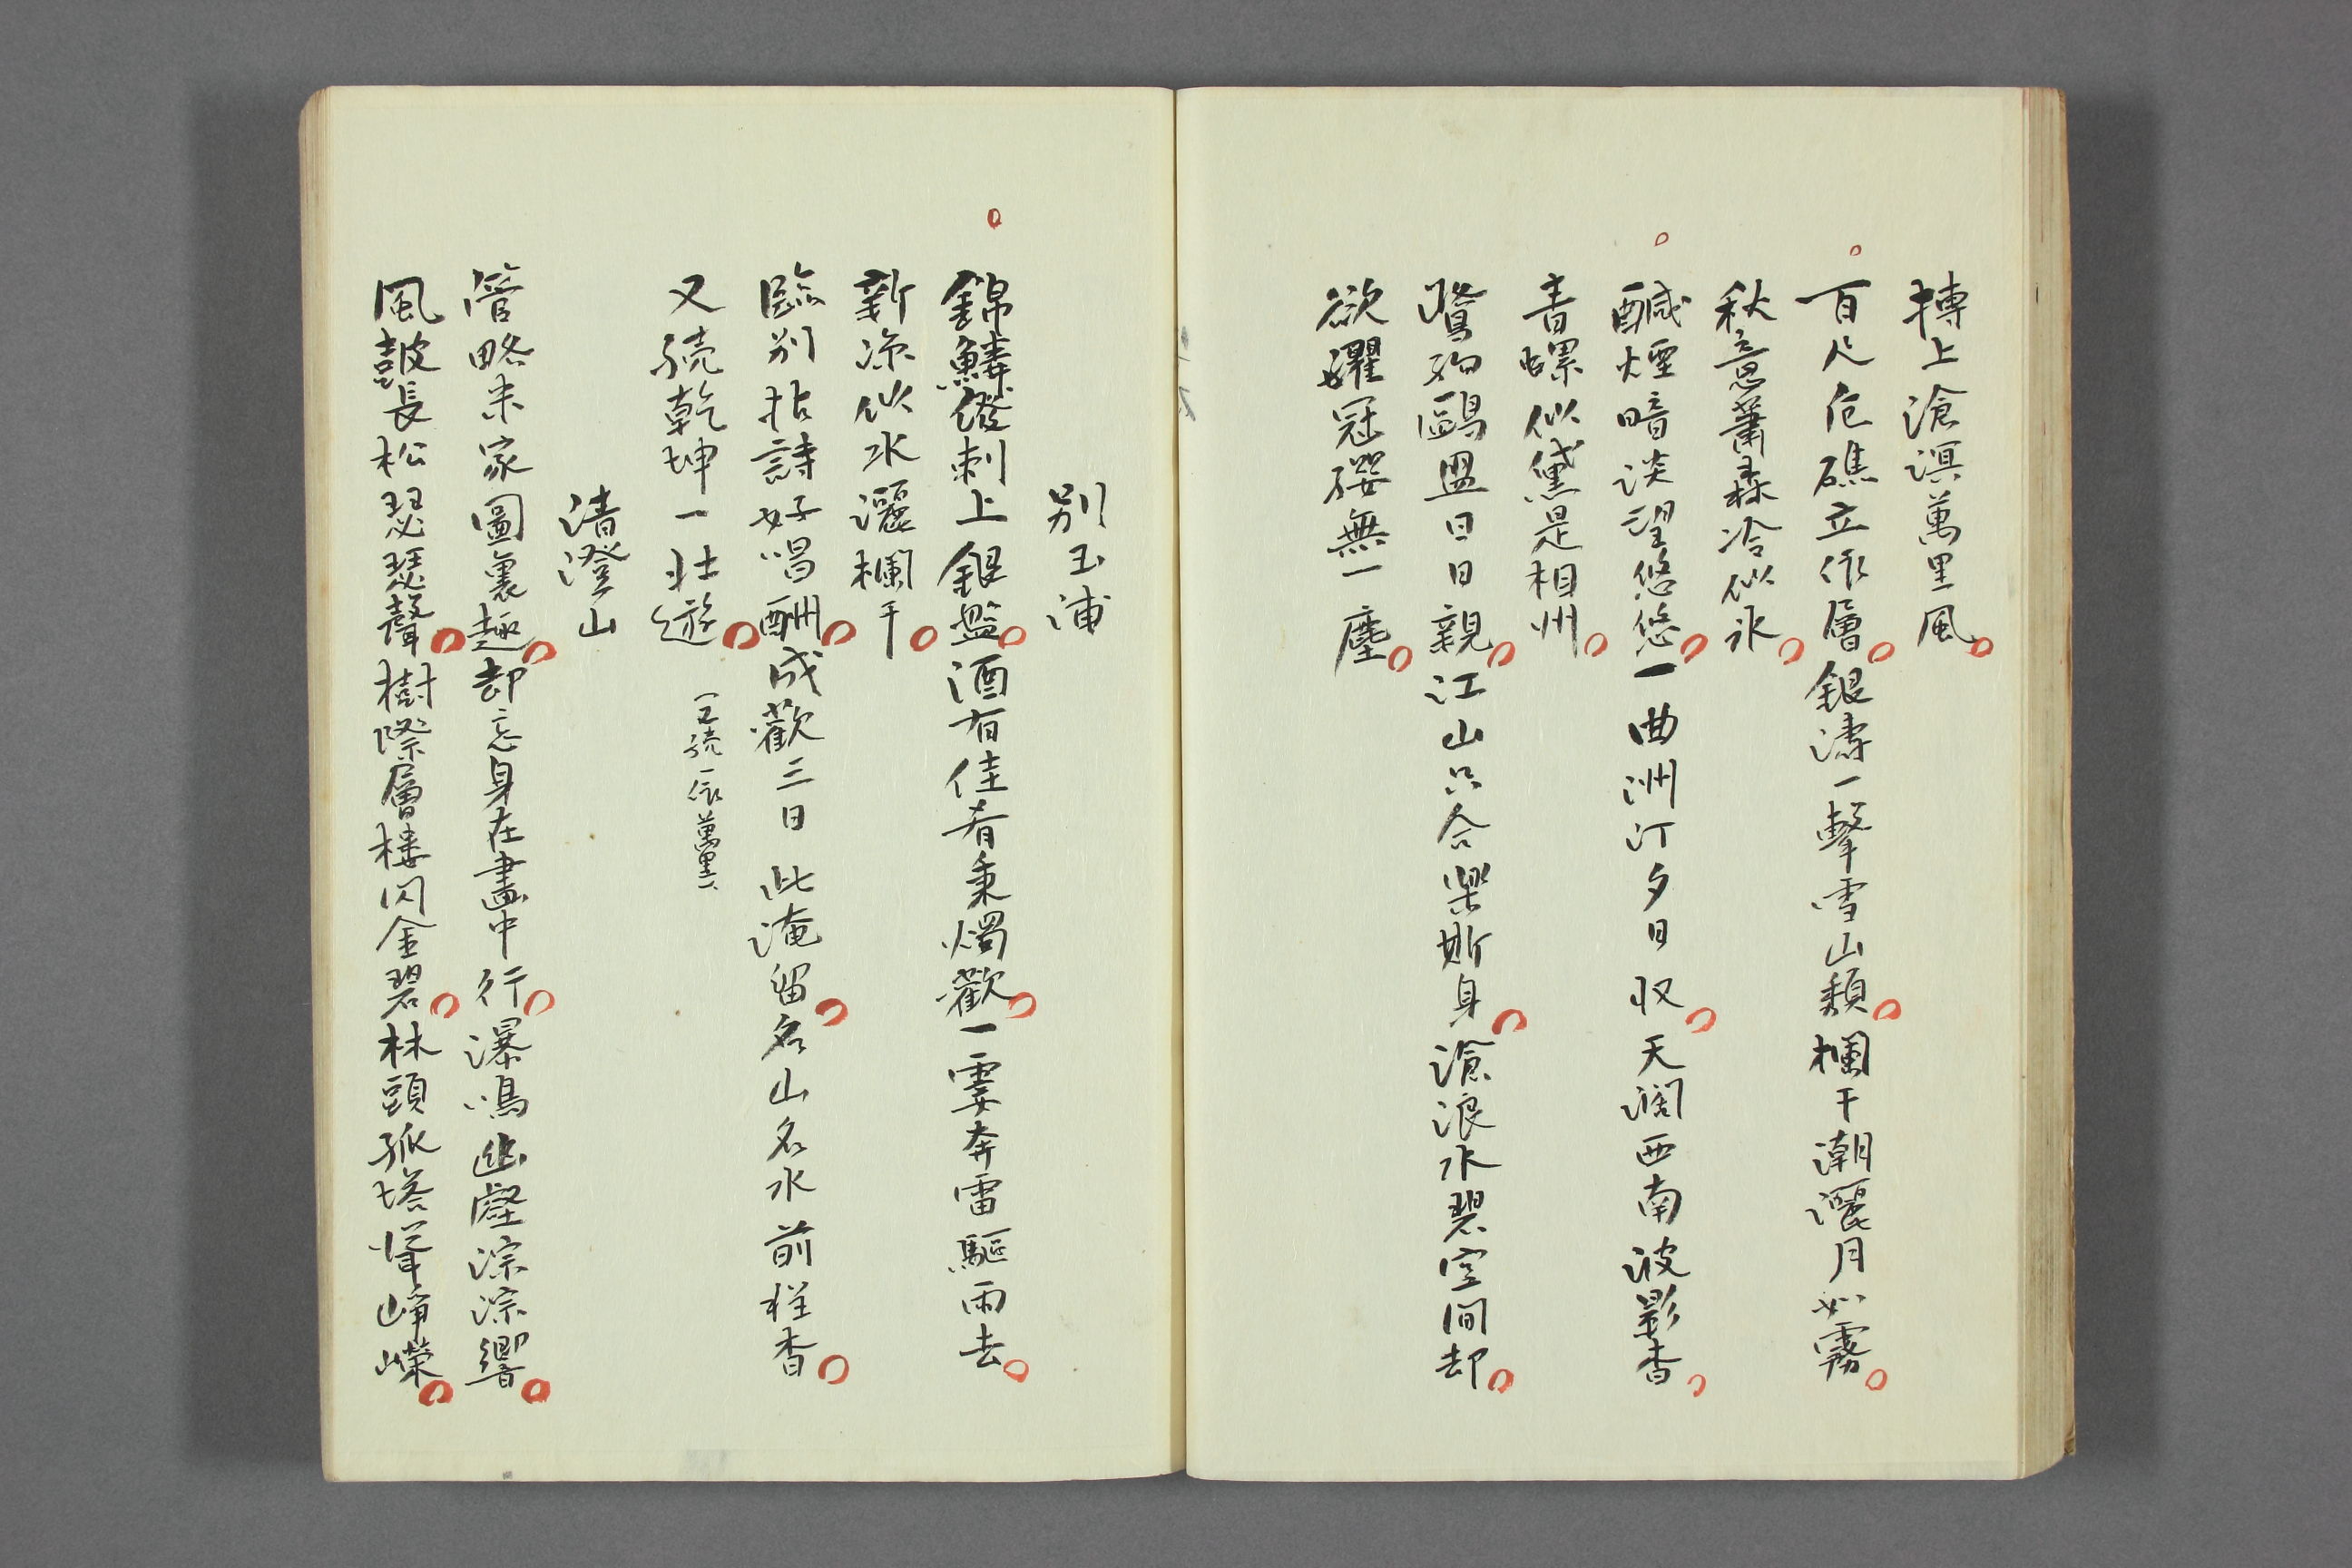 搏上滄溟萬里風
百尺危礁立作層銀濤一擊雪山頽欄干潮灑月如霧
秋意蕭森冷似氷
鹹煙暗淡望悠悠一曲洲汀夕日収天濶西南波影杳
青螺似黛是相州
鷺狎鷗盟日日親江山只合樂斯身滄浪水碧空間却
欲濯冠纓無一塵
別玉浦
錦鱗潑刺上銀盤酒有佳肴秉燭歡一霎奔雷驅雨去
新凉似水灑欄干
臨別拈詩好唱酬成歡三日此淹留名山名水前程杳
又続乾坤一壮遊
(又続一作萬里)
清澄山
管略米家圖裏趣却忘身在畫中行瀑鳴幽壑淙淙響
風皷長松瑟瑟聲樹際層樓閃金碧林頭孤塔聳崢嶸